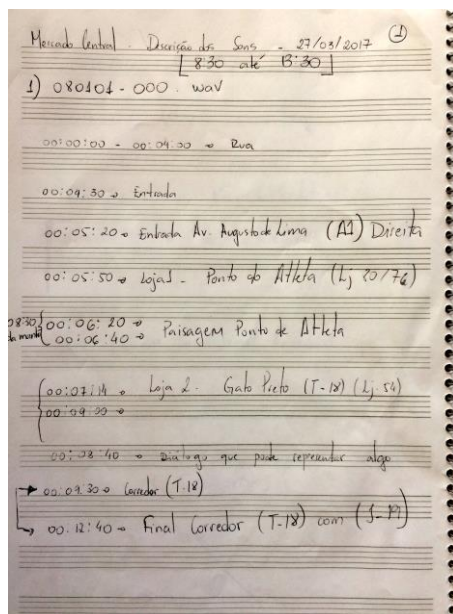 Mercado Central - Discrição dos Sons - 27/03/2017 ①
[8:30 até 13:30]
1) 080101-000.wav
00:00:00 - 00:04:00 → Rua
00:04:30 → Entrada
00:05:20 → Entrada Av. Augusto de Lima (A1) Direita
00:05:50 → Loja1 - Ponto do Atleta (Lj 20/76)
08:30 da manhã { 00:06:20 →
00:06:40 → Paisagem Ponto de Atleta
00:07:14 → Loja 2 - Gato Preto (T-18) (Lj. 54)
00:09:00 →
00:08:40 → Diálogo que pode representar algo
→ 00:09:30 → Corredor (T-18)
→ 00:12:40 → Final Corredor (T-18) com (J-19)